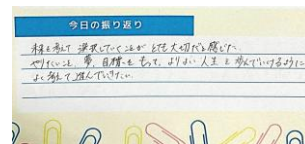 今日の振り返り
考えて選択していくことがとても大切だと感じた。
やりたいこと、夢、目標をもって、よりよい人生を歩んでいけるように
よく考えて進んでいきたい。